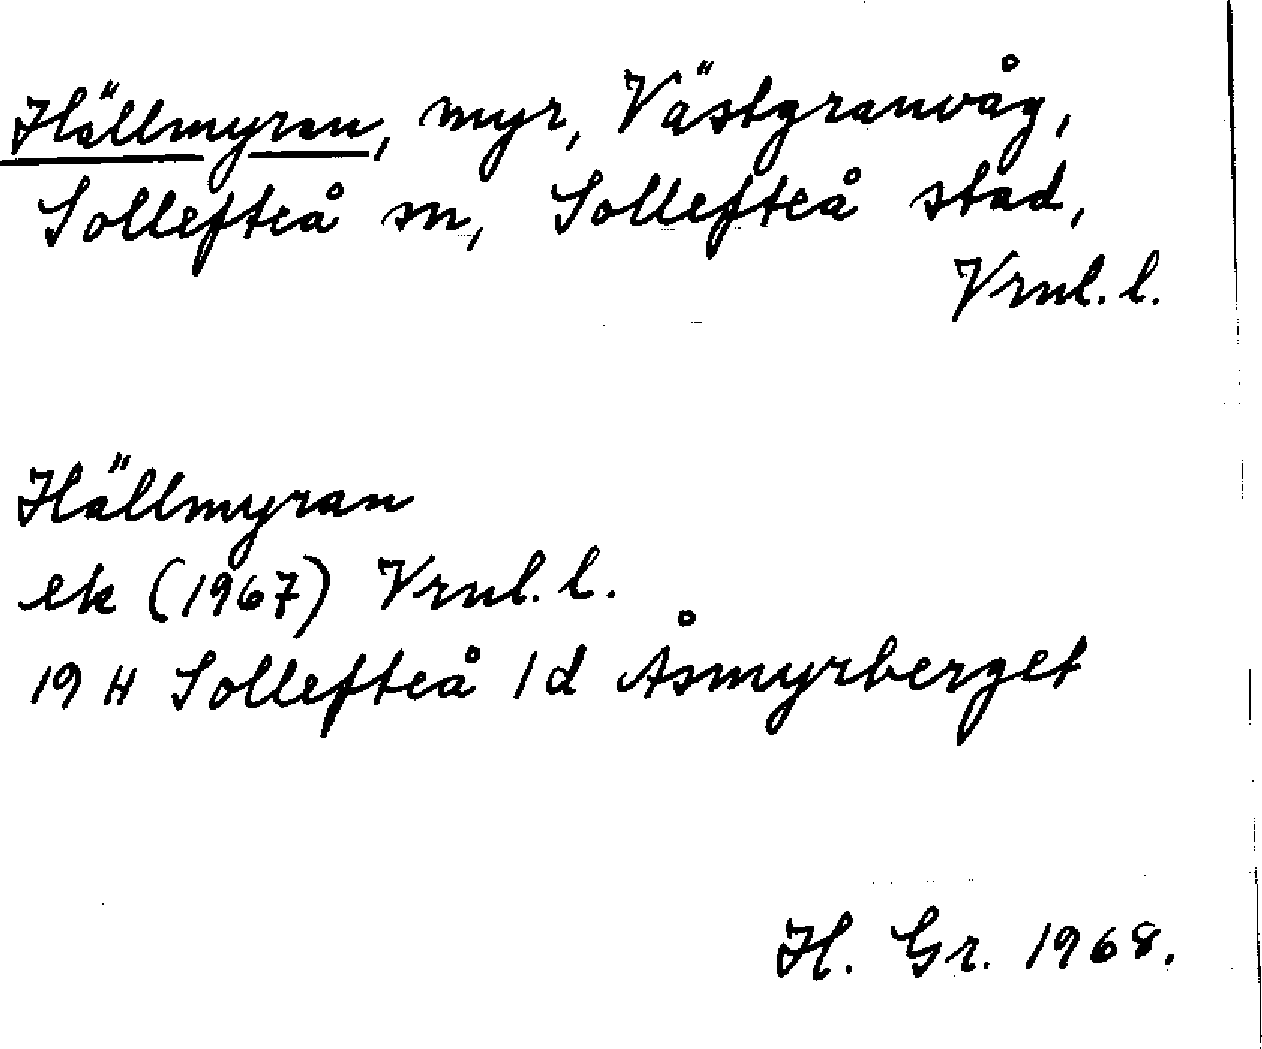 Hällmyran, myr, Västgranvåg,
Sollefteå sn, Sollefteå stad,
Vrnl. l.
Hällmyran
ek (1967) Vrnl. l.
19 H Sollefteå 1d Åsmyrberget
H. Gr. 1968.